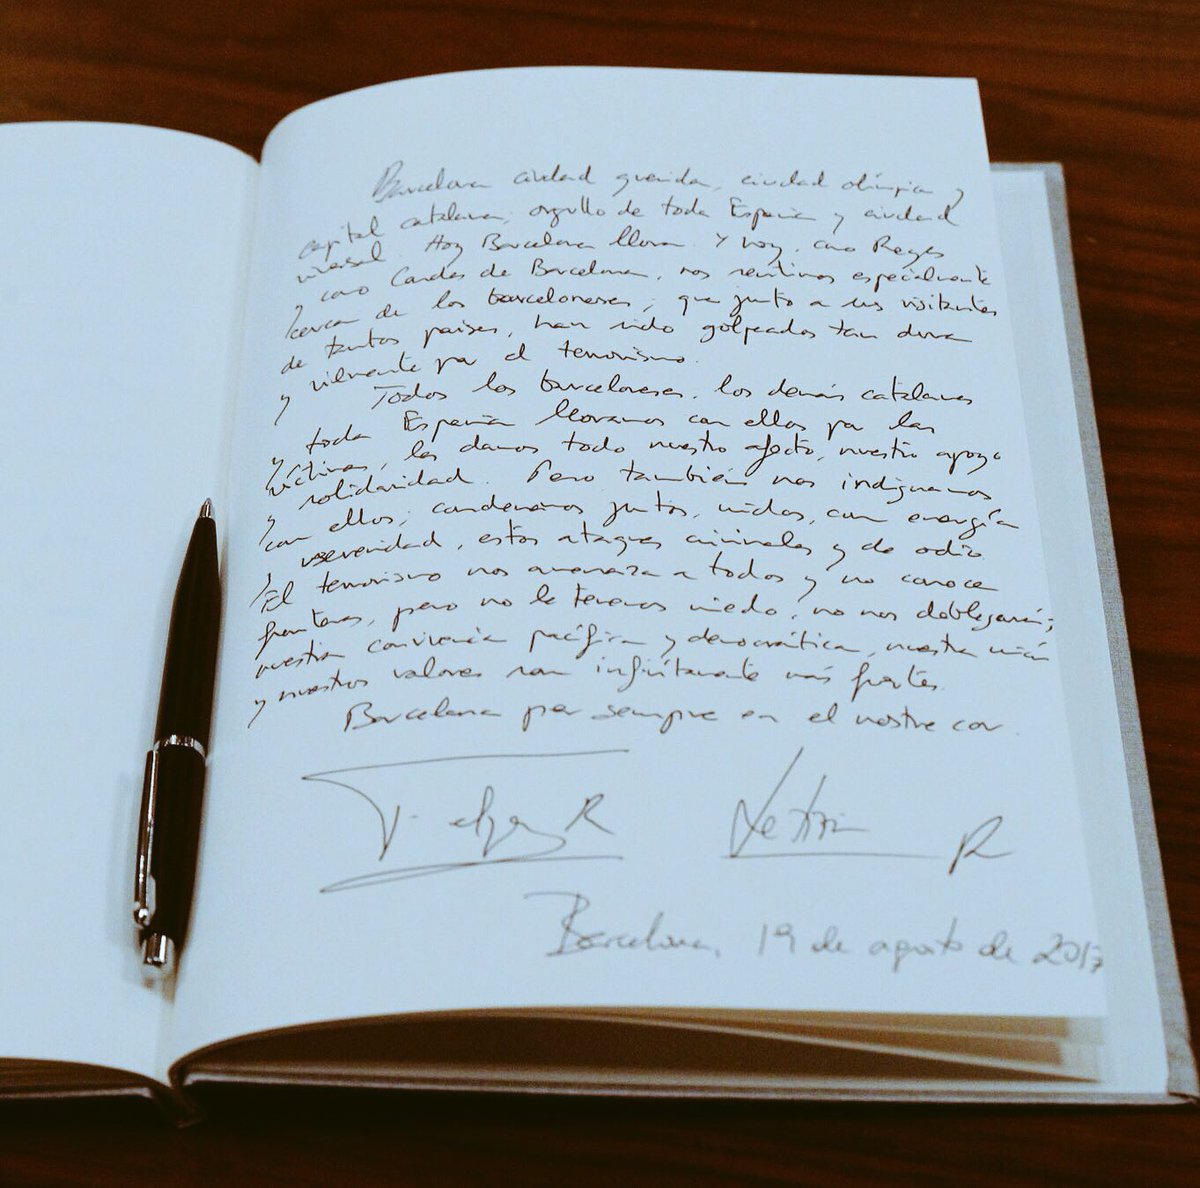 Barcelona ciudad querida, ciudad olímpica y
capital catalana, orgullo de toda España y ciudad
universal. Hoy Barcelona llora. Y hoy, como Reyes
y como Condes de Barcelona, nos sentimos especialmente
cerca de los barceloneses, que junto a sus visitantes
de tantos países, han sido golpeados tan dura
y vilmente por el terrorismo.
Todos los barceloneses, los demás catalanes
y toda España lloramos con ellos por las
víctimas, les damos todo nuestro afecto, nuestro apoyo
y solidaridad. Pero también nos indignamos
con ellos; condenamos juntos, unidos, con energía
y severidad, estos ataques criminales y de odio
El terrorismo nos amenaza a todos y no conoce
fronteras, pero no le tenemos miedo, no nos doblegará;
nuestra convivencia pacífica y democrática, nuestra unión
y nuestros valores son infinitamente más fuertes.
Barcelona per sempre en el nostre cor.
Felipe R Letizia R
Barcelona, 19 de agosto de 2017